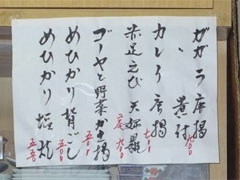 ガガラ唐揚
煮付
カレイ唐揚
赤足えび 天婦羅
ゴーヤと野菜かき揚
めひかり 背ごし 五〇〇
めひかり